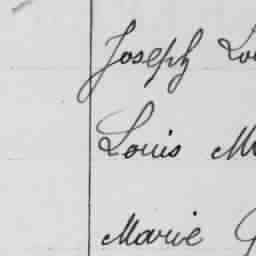 Joseph Lou
Louis M
Marie